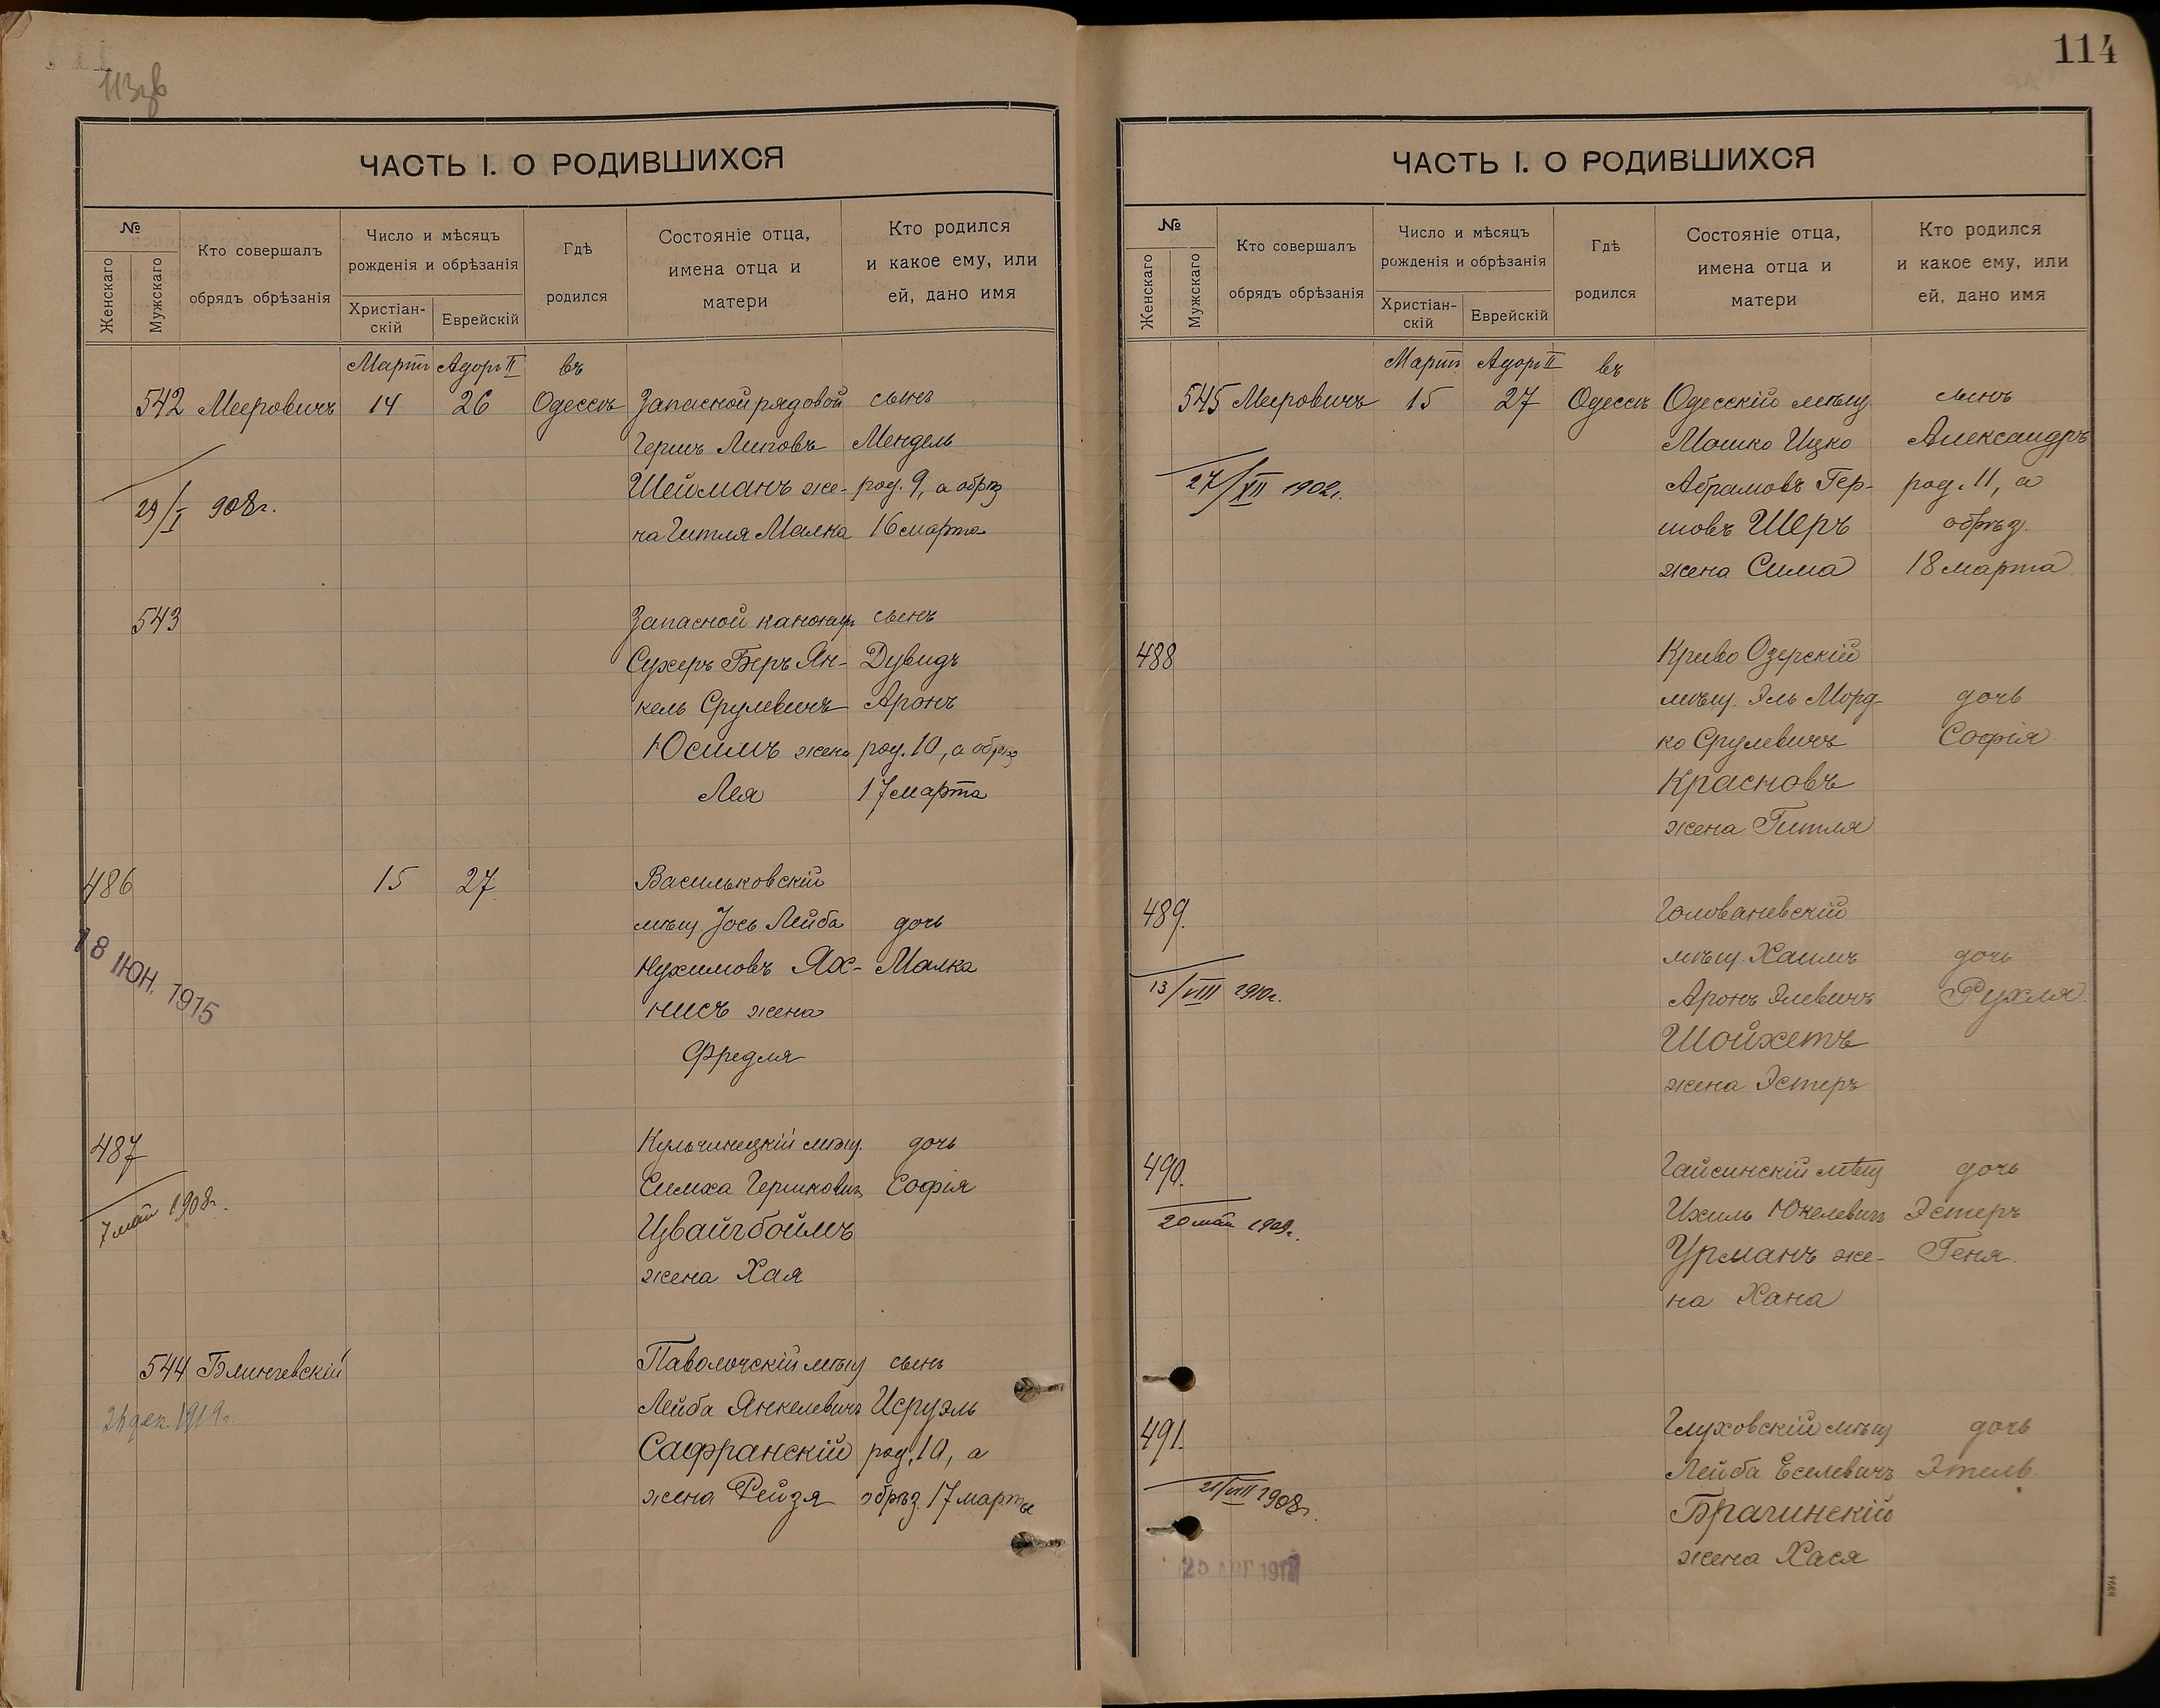 113об
ЧАСТЬ I. О РОДИВШИХСЯ
№
Женскаго
Мужскаго
Кто совершалъ
обрядъ обрѣзанія
Число и мѣсяцъ
рожденія и обрѣзанія
Христіан-
скій
Еврейскій
Гдѣ
родился
Состояніе отца,
имена отца и
матери
Кто родился
и какое ему, или
ей, дано имя
Мартъ Адоръ II въ
542 Мееровичъ 14 26 Одессѣ Запасной рядовой сынъ
Гершъ Липовъ Мендель
Шейманъ же- род. 9, а обрѣз
на Гитля Малка 16 марта
29/I 908г.
543 Запасной канониръ сынъ
Сухеръ Беръ Ян- Дувидъ
кель Срулевичъ Аронъ
Юсимъ жена род. 10, а обрѣз
Лея 17 марта
486 15 27 Васильковскій
мѣщ. Іось Лейба дочь
Нухимовъ Ях- Малка
нисъ жена
Фредля
18 ІЮН. 1915
487 Кульчинецкій мѣщ. дочь
Симха Гершковичъ Софія
Цвайгбоймъ
жена Хая
7 май 1908г.
544 Блинчевскій Паволочскій мѣщ сынъ
Лейба Янкелевичъ Исруэль
Сафранскій род. 10, а
жена Рейзя обрѣз. 17 марта
26 дек. 1919г.
114
ЧАСТЬ I. О РОДИВШИХСЯ
№
Женскаго
Мужскаго
Кто совершалъ
обрядъ обрѣзанія
Число и мѣсяцъ
рожденія и обрѣзанія
Христіан-
скій
Еврейскій
Гдѣ
родился
Состояніе отца,
имена отца и
матери
Кто родился
и какое ему, или
ей, дано имя
Мартъ Адоръ II въ
545 Мееровичъ 15 27 Одессѣ Одесскій мѣщ сынъ
Мошко Ицко Александръ
Абрамовъ Гер- род. 11, а
шовъ Шеръ обрѣз.
жена Сима 18 марта
27/XII 1902г.
488 Криво Озерскій
мѣщ. Эль Морд- дочь
ко Срулевичъ Софія
Красновъ
жена Гитля
489. Голованевскій
мѣщ. Хаимъ дочь
Аронъ Элевичъ Рухля
Шойхетъ
жена Эстеръ
13/VIII 1910г.
490. Гайсинскій мѣщ дочь
Ихиль Юкелевичъ Эстеръ
Урманъ же- Геня
на Хана
20 май 1909г.
491. Глуховскій мѣщ дочь
Лейба Еселевичъ Этель
Брагинскій
жена Хася
21/VIII 1908г.